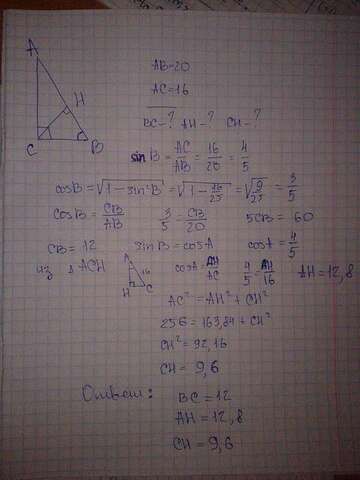 A
H
C
B
AB=20
AC=16
BC-? AH-? CH-?
sin B = AC/AB = 16/20 = 4/5
cos B = √1-sin²B = √1-16/25 = √9/25 = 3/5
cos B = CB/AB 3/5 = CB/20 5CB = 60
CB = 12 sin B = cos A cos A = 4/5
из Δ ACH A 16 H C cos A = AH/AC 4/5 = AH/16 AH = 12,8
AC² = AH² + CH²
256 = 163,84 + CH²
CH² = 92,16
CH = 9,6
Ответ: BC = 12
AH = 12,8
CH = 9,6